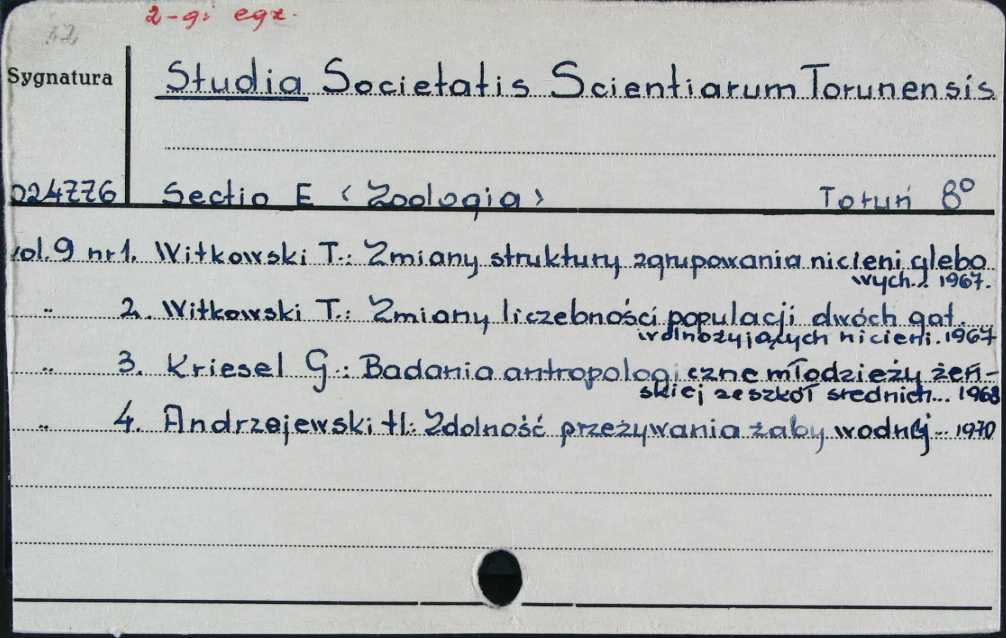 2-gi egz.
Sygnatura
Studia Societatis Scientiarum Torunensis
024776 Sectio E (Zoologia) Toruń 8°
vol. 9 nr 1. Witkowski T.: Zmiany struktury zgrupowania nicieni glebo
wych... 1967.
„ 2. Witkowski T.: Zmiany liczebności populacji dwóch gat.
wolnożyjących nicieni. 1967
„ 3. Kriesel G.: Badania antropologiczne młodzieży żeń-
skiej ze szkół średnich... 1968
„ 4. Andrzejewski H.: Zdolność przeżywania żaby wodnej... 1970